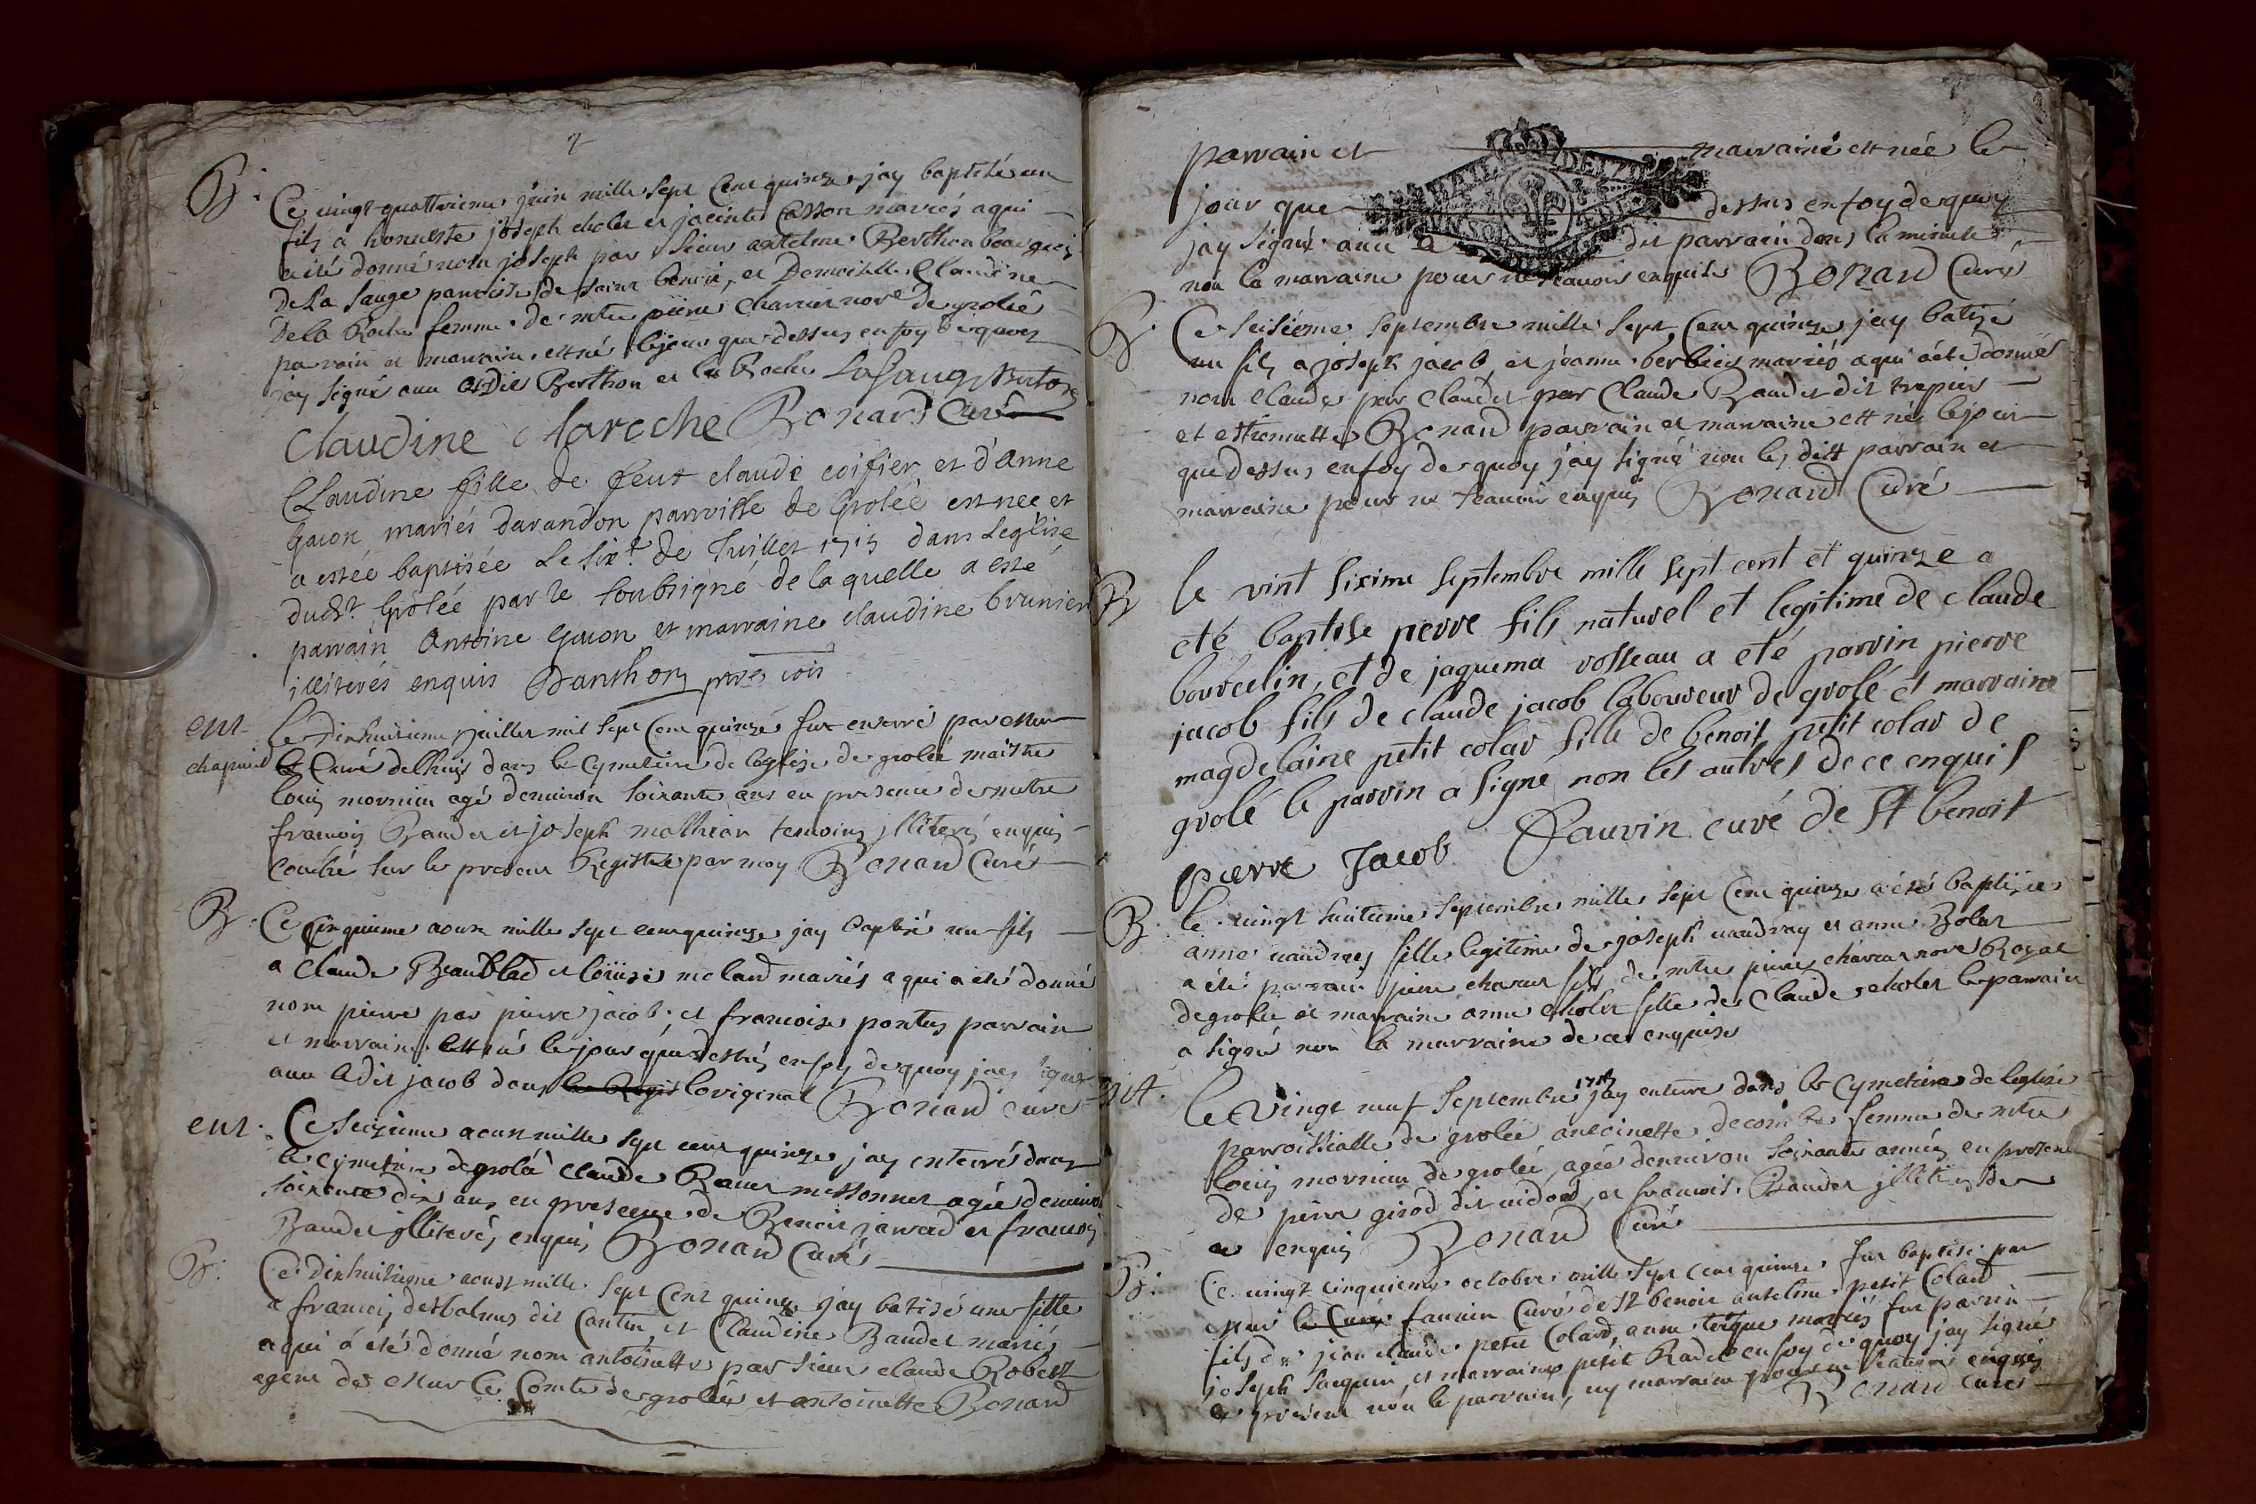 B.
Ce vingt quattrieme juin mille sept cent quinze jay baptisé un
fils a honneste joseph cholet et jacinte Casson mariés a qui
a été donné nom joseph par sieur antelme Berthon bourgeois
de la sauge parroisse de saint benoit, et Demoiselle Claudine
De la Roche femme de mtre pierre Charcun nore de grolée
parrain et marraine, est né le jour que dessus en foy de quoy
jay signé avec lesdits Berthon et la Roche Lasauge Berton
Claudine laroche Bonard Curé
Claudine fille de feut claude coifier et d'Anne
Guion mariés darandon parroisse de Grolée est nee et
a estée baptisée Le sixe. de Juillet 1715 dans Leglise
dudt. Grolée par le soubsigné de laquelle a esté
parrain Antoine Guion et marraine claudine brunier
illiterés enquis Danthon
ent.
Le dixhuitieme juillet mil sept cent quinze fut enterré par
Curé dans le Cymetiere de leglise de grolée maistre
Louis mornieu agé denviron soixante ans en presence de mtre
francois Baudet et joseph mathian temoins illiterés enquis
Couché sur le present Registre par moy Bonard Curé
B.
Ce cinquieme aoust mille sept cent quinze jay baptisé un fils
a Claude Beaublad et loüise meland mariés a qui a été donné
nom pierre par pierre jacob et francoise pontus parrain
et marraine est né le jour que dessus en foy de quoy jay signé
avec ledit jacob dans le Regis loriginal Bonard curé
ent.
Ce seizieme aoust mille sept cent quinze jay enterré dans
le cymetiere de grolée claude agé denviron
soixante dix ans en presence de Benoit javard et francois
Baudet illiterés enquis Bonard Curé
B.
Ce dixhuitieme aoust mille sept cent quinze jay batisé une fille
a francois desbalmes dit Cantin et Claudine Baudet mariés
a qui a été donné nom antoinette par sieur claude Robert
agent de Mur Le Comte de grolée et antoinette Bonard
parrain et marraine est née le
jour que dessus en foy de quoy
jay signé avec le dit parrain dans la minute
non la marraine pour ne scavoir enquise Bonard Curé
B.
Ce seisiéme septembre mille sept cent quinze jay batizé
un fils a joseph jacob et joanne berbier mariés a qui a été donné
nom claude par claudet par Claude Baudet dit trepier
et estiennette Bonard parrain et marraine est né le jour
que dessus en foy de quoy j'ay signé non les dits parrain et
marraine pour ne scavoir enquis Bonard Curé
B
le vint sixime septembre mille sept cent et quinze a
eté baptise pierre fils naturel et legitime de claude
bourcelin, et de jaquema rosseau a eté parrin pierre
jacob fils de claude jacob laboureur de grolé et marraine
magdelaine petit colar fille de benoit petit colar de
grolé le parrin a signé non les autres de ce enquis
pierre Jacob Fauvin curé de st benoit
B.
le vingt huitieme septembre mille sept cent quinze a été baptizée
anne vaudrey fille legitime de joseph vaudrey et anne Bolat
a été parrain pierre charcun fils de mtre pierre charcun nore Royal
de grolée et marraine anne cholet fille de Claude cholet le parrain
a signé non la marraine de ce enquise
ent.
le vingt neuf septembre 1715 jay enterré dans le Cymetiere de leglise
parroissialle de grolée antoinette decombe femme de mtre
louis mornieu de grolée, agée denviron soixante années en presence
de pierre girod dit vidod, et francois Baudet illiterés de
ce enquis Bonard Curé
B.
Ce vingt cinquieme octobre mille sept cent quinze fut baptisé par
mur le Curé fauvin Curé de St benoit antelme petit Colard
fils de jean claude petit Colard, anne mariés fut parrin
joseph et marraine petit en foy de quoy jay signé
le present non le parrain, ny marraine pour ne scavoir enquis
Bonard curé